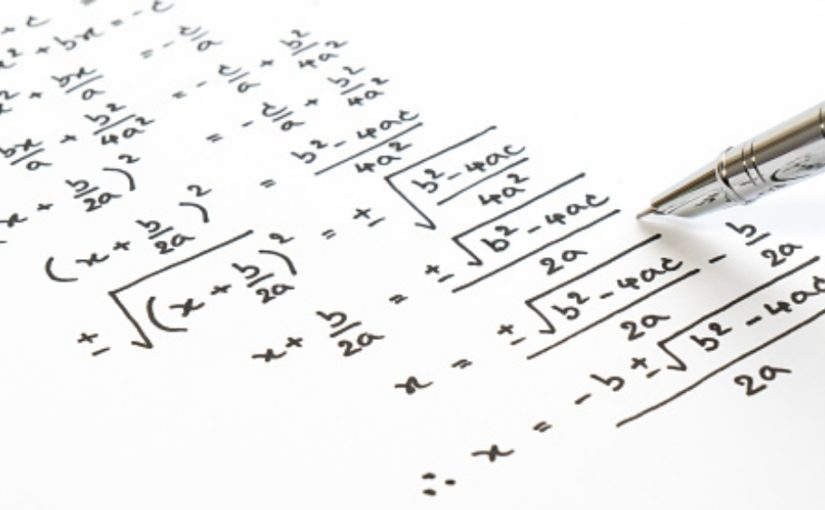 + c =
x² + bx = -c
x² + bx/a = -c/a
bx/a + b²/4a² = -c/a + b²/4a²
x + b/2a)² = -c/a + b²/4a²
(x + b/2a)² = b² - 4ac/4a²
± √(x + b/2a)² = ± √b² - 4ac/4a²
x + b/2a = ± √b² - 4ac/2a
x = ± √b² - 4ac/2a - b/2a
∴ x = -b ± √b² - 4ac/2a